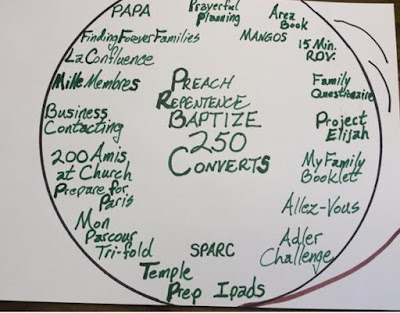 PAPA
Prayerful
Planning
Area
Book
Finding Forever Families
MANGOS
15 Min.
RDV.
La Confluence
Mille Membres
Family
Questionnaire
PREACH
REPENTENCE
BAPTIZE
250
CONVERTS
Business
Contacting
Project
Elijah
200 Amis
at Church
Prepare for
Paris
My Family
Booklet
Mon
Parcour
Tri-fold
Allez-Vous
SPARC
Adler
Challenge
Temple
Prep Ipads